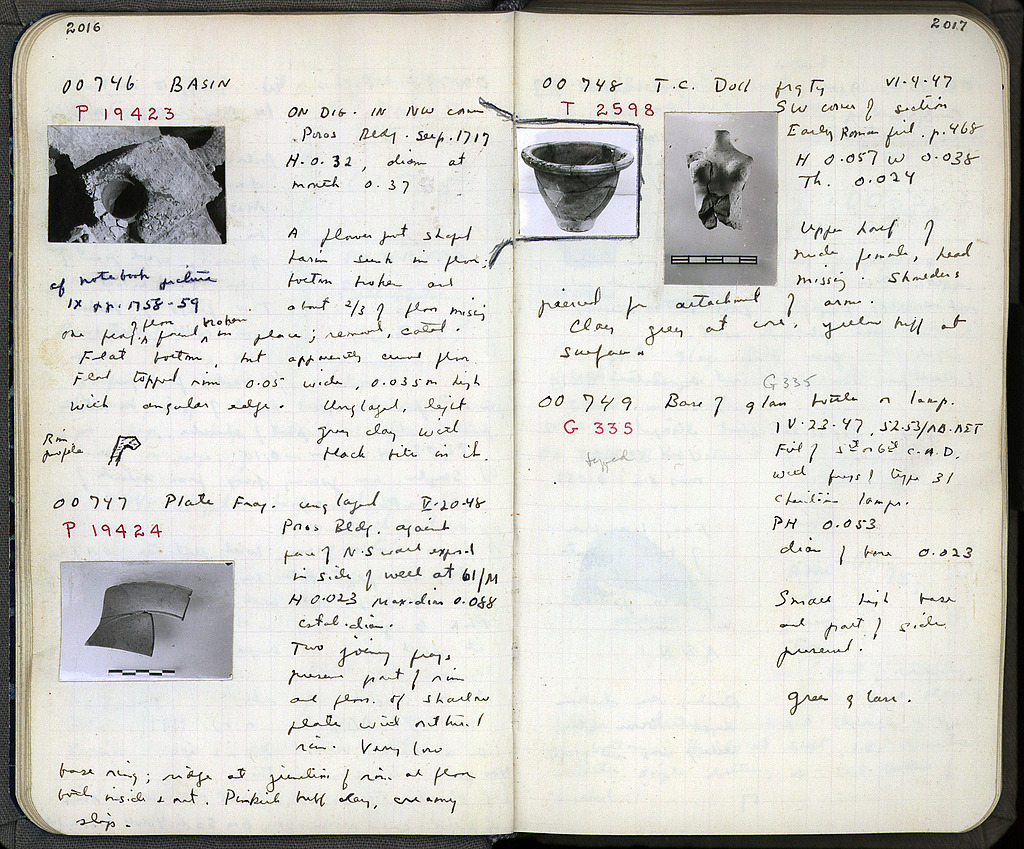 2016
OO 746 BASIN
P 19423
ON DIG. IN NW corner
Poros Bldg. See p. 1717
H. 0.32, diam at
mouth 0.37
A flower pot shaped
basin sunk in floor;
bottom broken and
about 2/3 of floor missing.
cf notebook picture
IX pp. 1758-59
one frag. of floor found broken in place; removed,
Flat bottom, but apparently curved floor.
Flat topped rim 0.05 wide, 0.035m high
with angular edge. Unglazed, light
grey clay with
black bits in it.
Rim
profile
OO 747 Plate Frag. unglazed V-20-48
P 19424
Poros Bldg. against
face of N-S wall exposed
in side of well at 61/M
H 0.023 Max. diam 0.088
Two joining frags
preserve part of rim
and floor of shallow
plate with
rim. Very low
base ring; ridge at junction of rim and floor
both inside & out. Pinkish buff clay, creamy
slip.
2017
OO 748 T.C. Doll frgt VI-4-47
T 2598
SW corner of section
Early Roman fill. p. 468
H 0.057 W 0.038
Th. 0.024
Upper half of
nude female, head
missing. Shoulders
pierced for attachment of arms.
Clay grey at core, yellow buff at
surface.
G 335
OO 749 Base of glass bottle or lamp.
G 335
IV-23-47, 52-53/
Fill of 5th or 6th C.A.D.
with frags of type 31
Christian lamps.
PH 0.053
diam of base 0.023
Small high base
and part of side
preserved.
green glass.